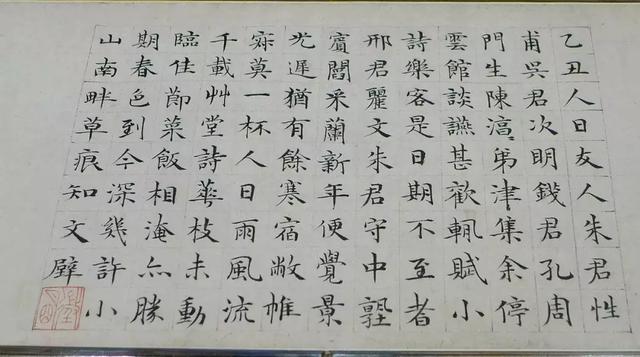 乙丑人日友人朱君性
甫吳君次明錢君孔周
門生陳淳弟津集余停
雲館談讌甚歡輒賦小
詩樂客是日期不至者
邢君麗文朱君守中塾
賓閻采蘭新年便覺景
光遲猶有餘寒宿敝帷
寂莫一杯人日雨風流
千載艸堂詩華枝未動
臨佳節菜飯相淹亦勝
期春色到今深幾許小
山南畔草痕知文壁